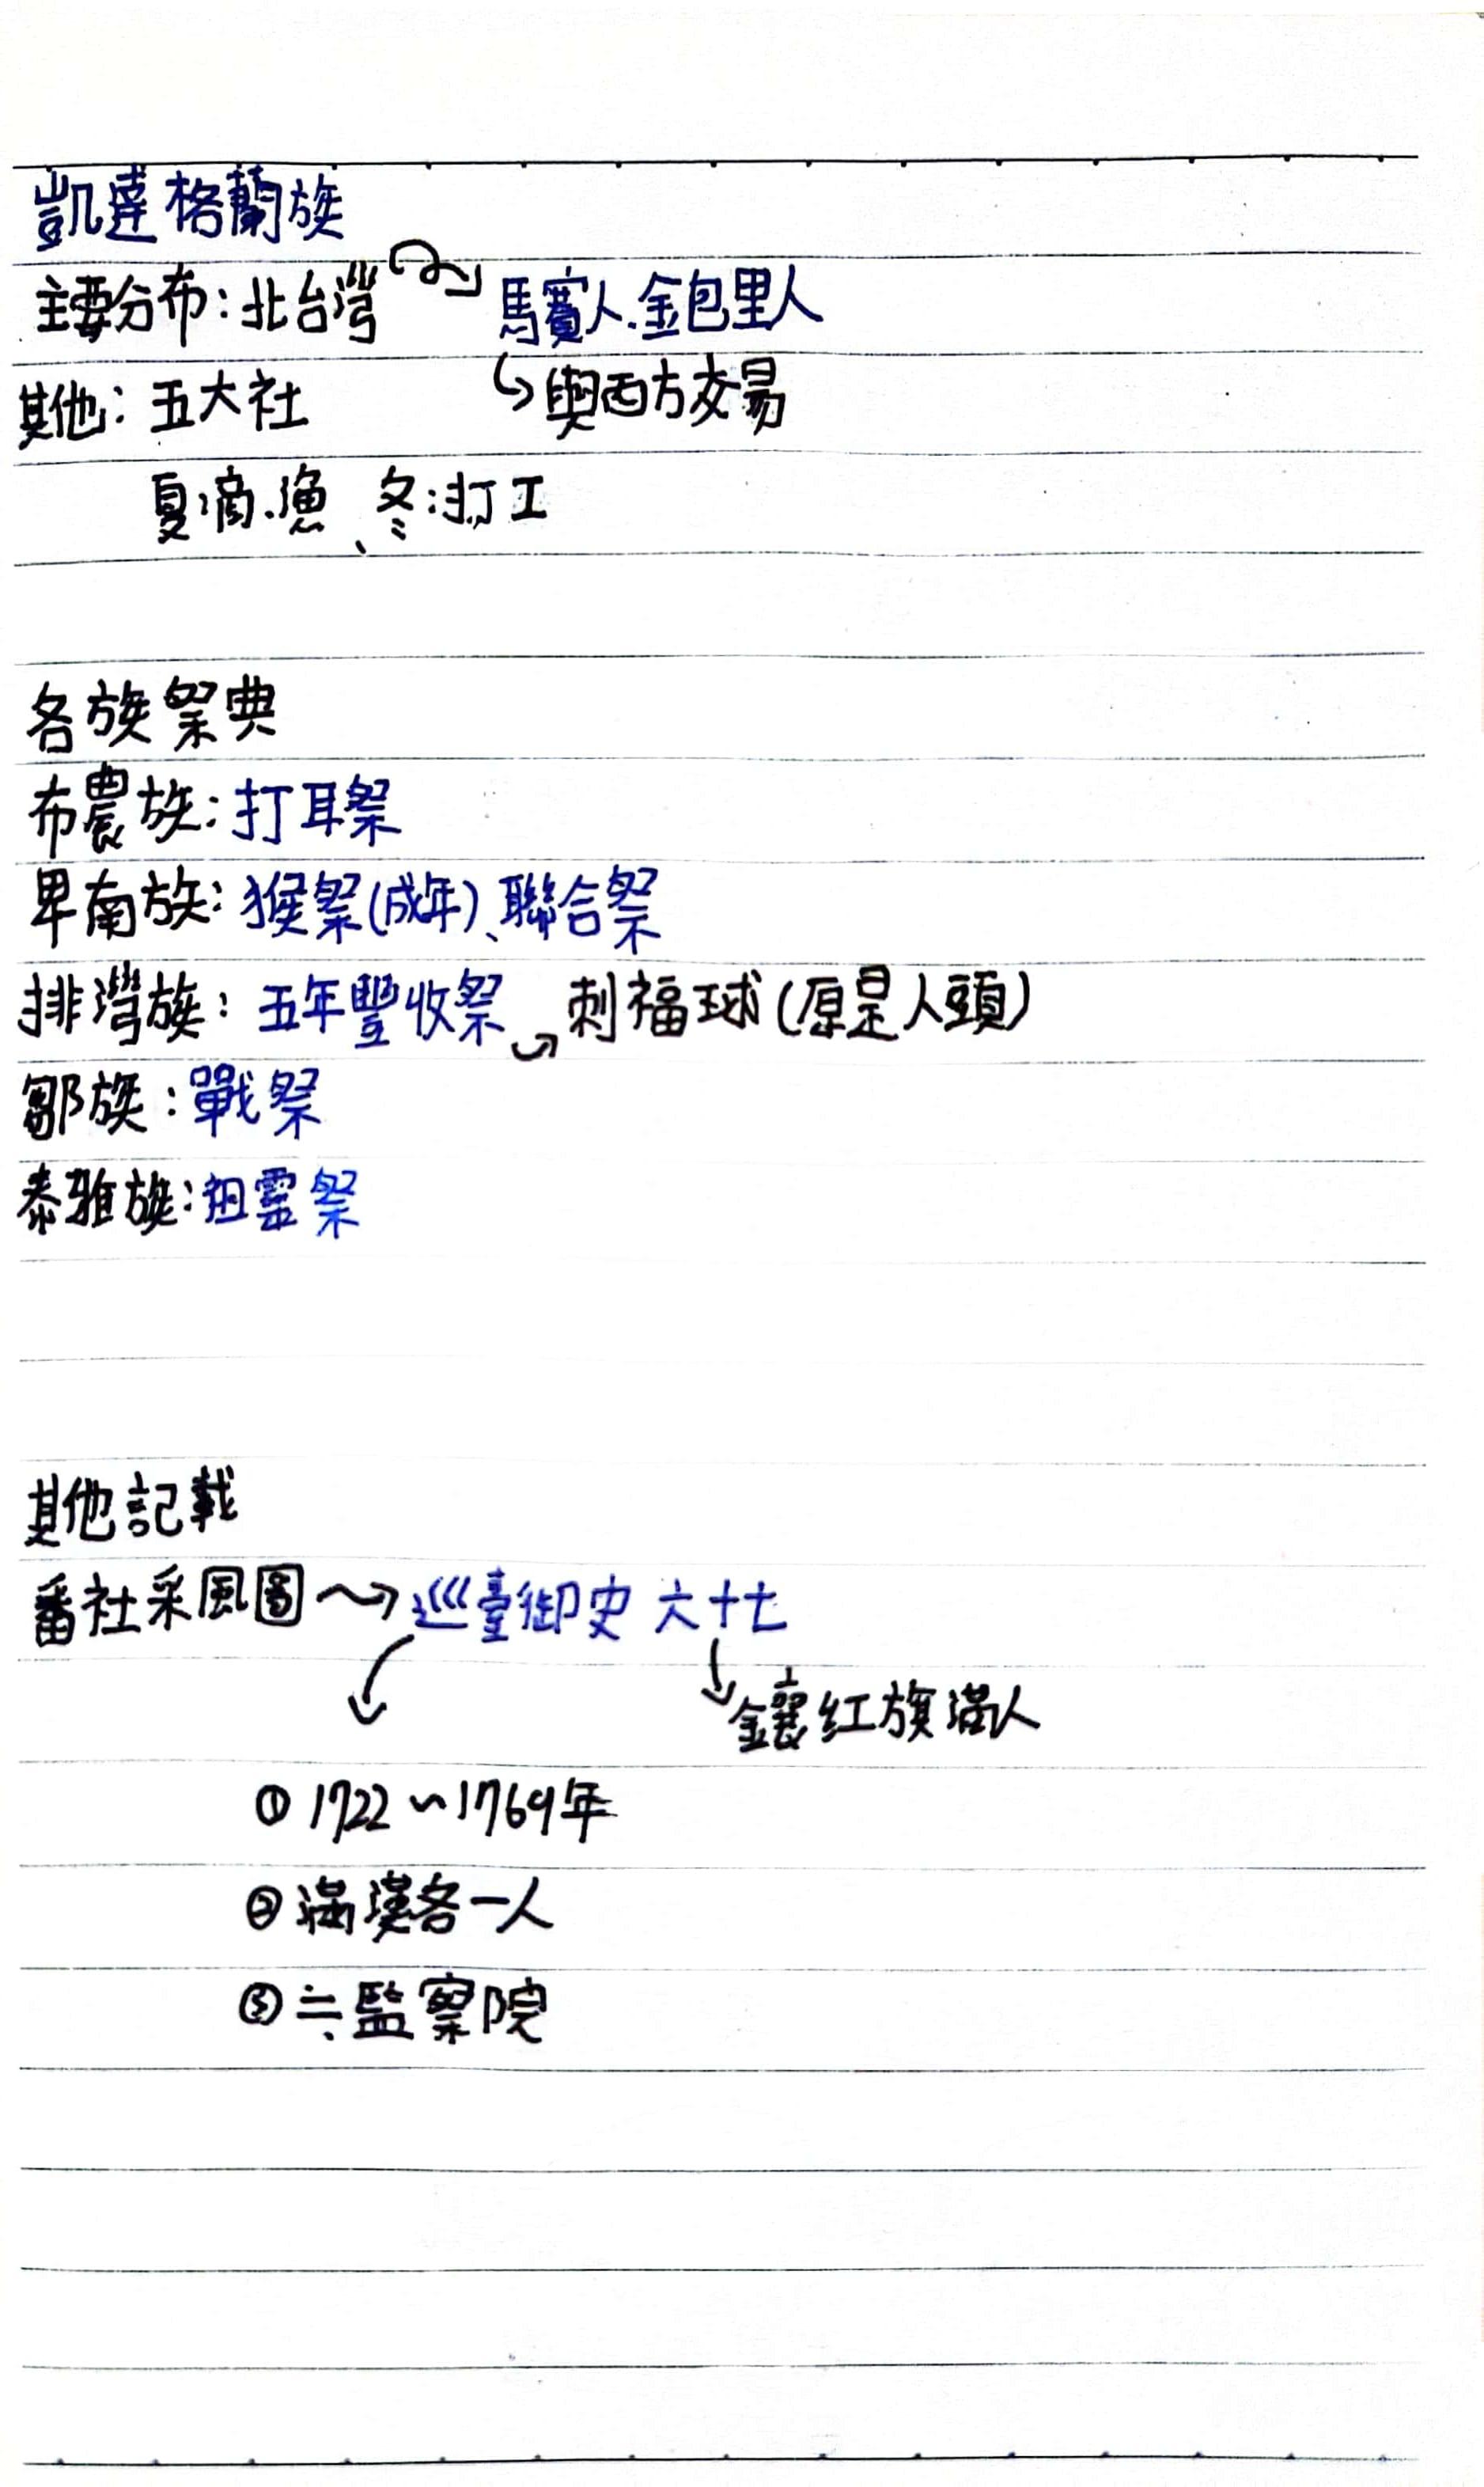 凱達格蘭族
主要分布：北台灣 馬賽人、金包里人
其他：五大社 與西方交易
夏：商、漁、冬：打工
各族祭典
布農族：打耳祭
卑南族：猴祭(成年)、聯合祭
排灣族：五年豐收祭 刺福球(原是人頭)
鄒族：戰祭
泰雅族：祖靈祭
其他記載
番社采風圖 巡臺御史 六十七
鑲紅旗滿人
① 1722～1769年
② 滿漢各一人
③ ≒監察院